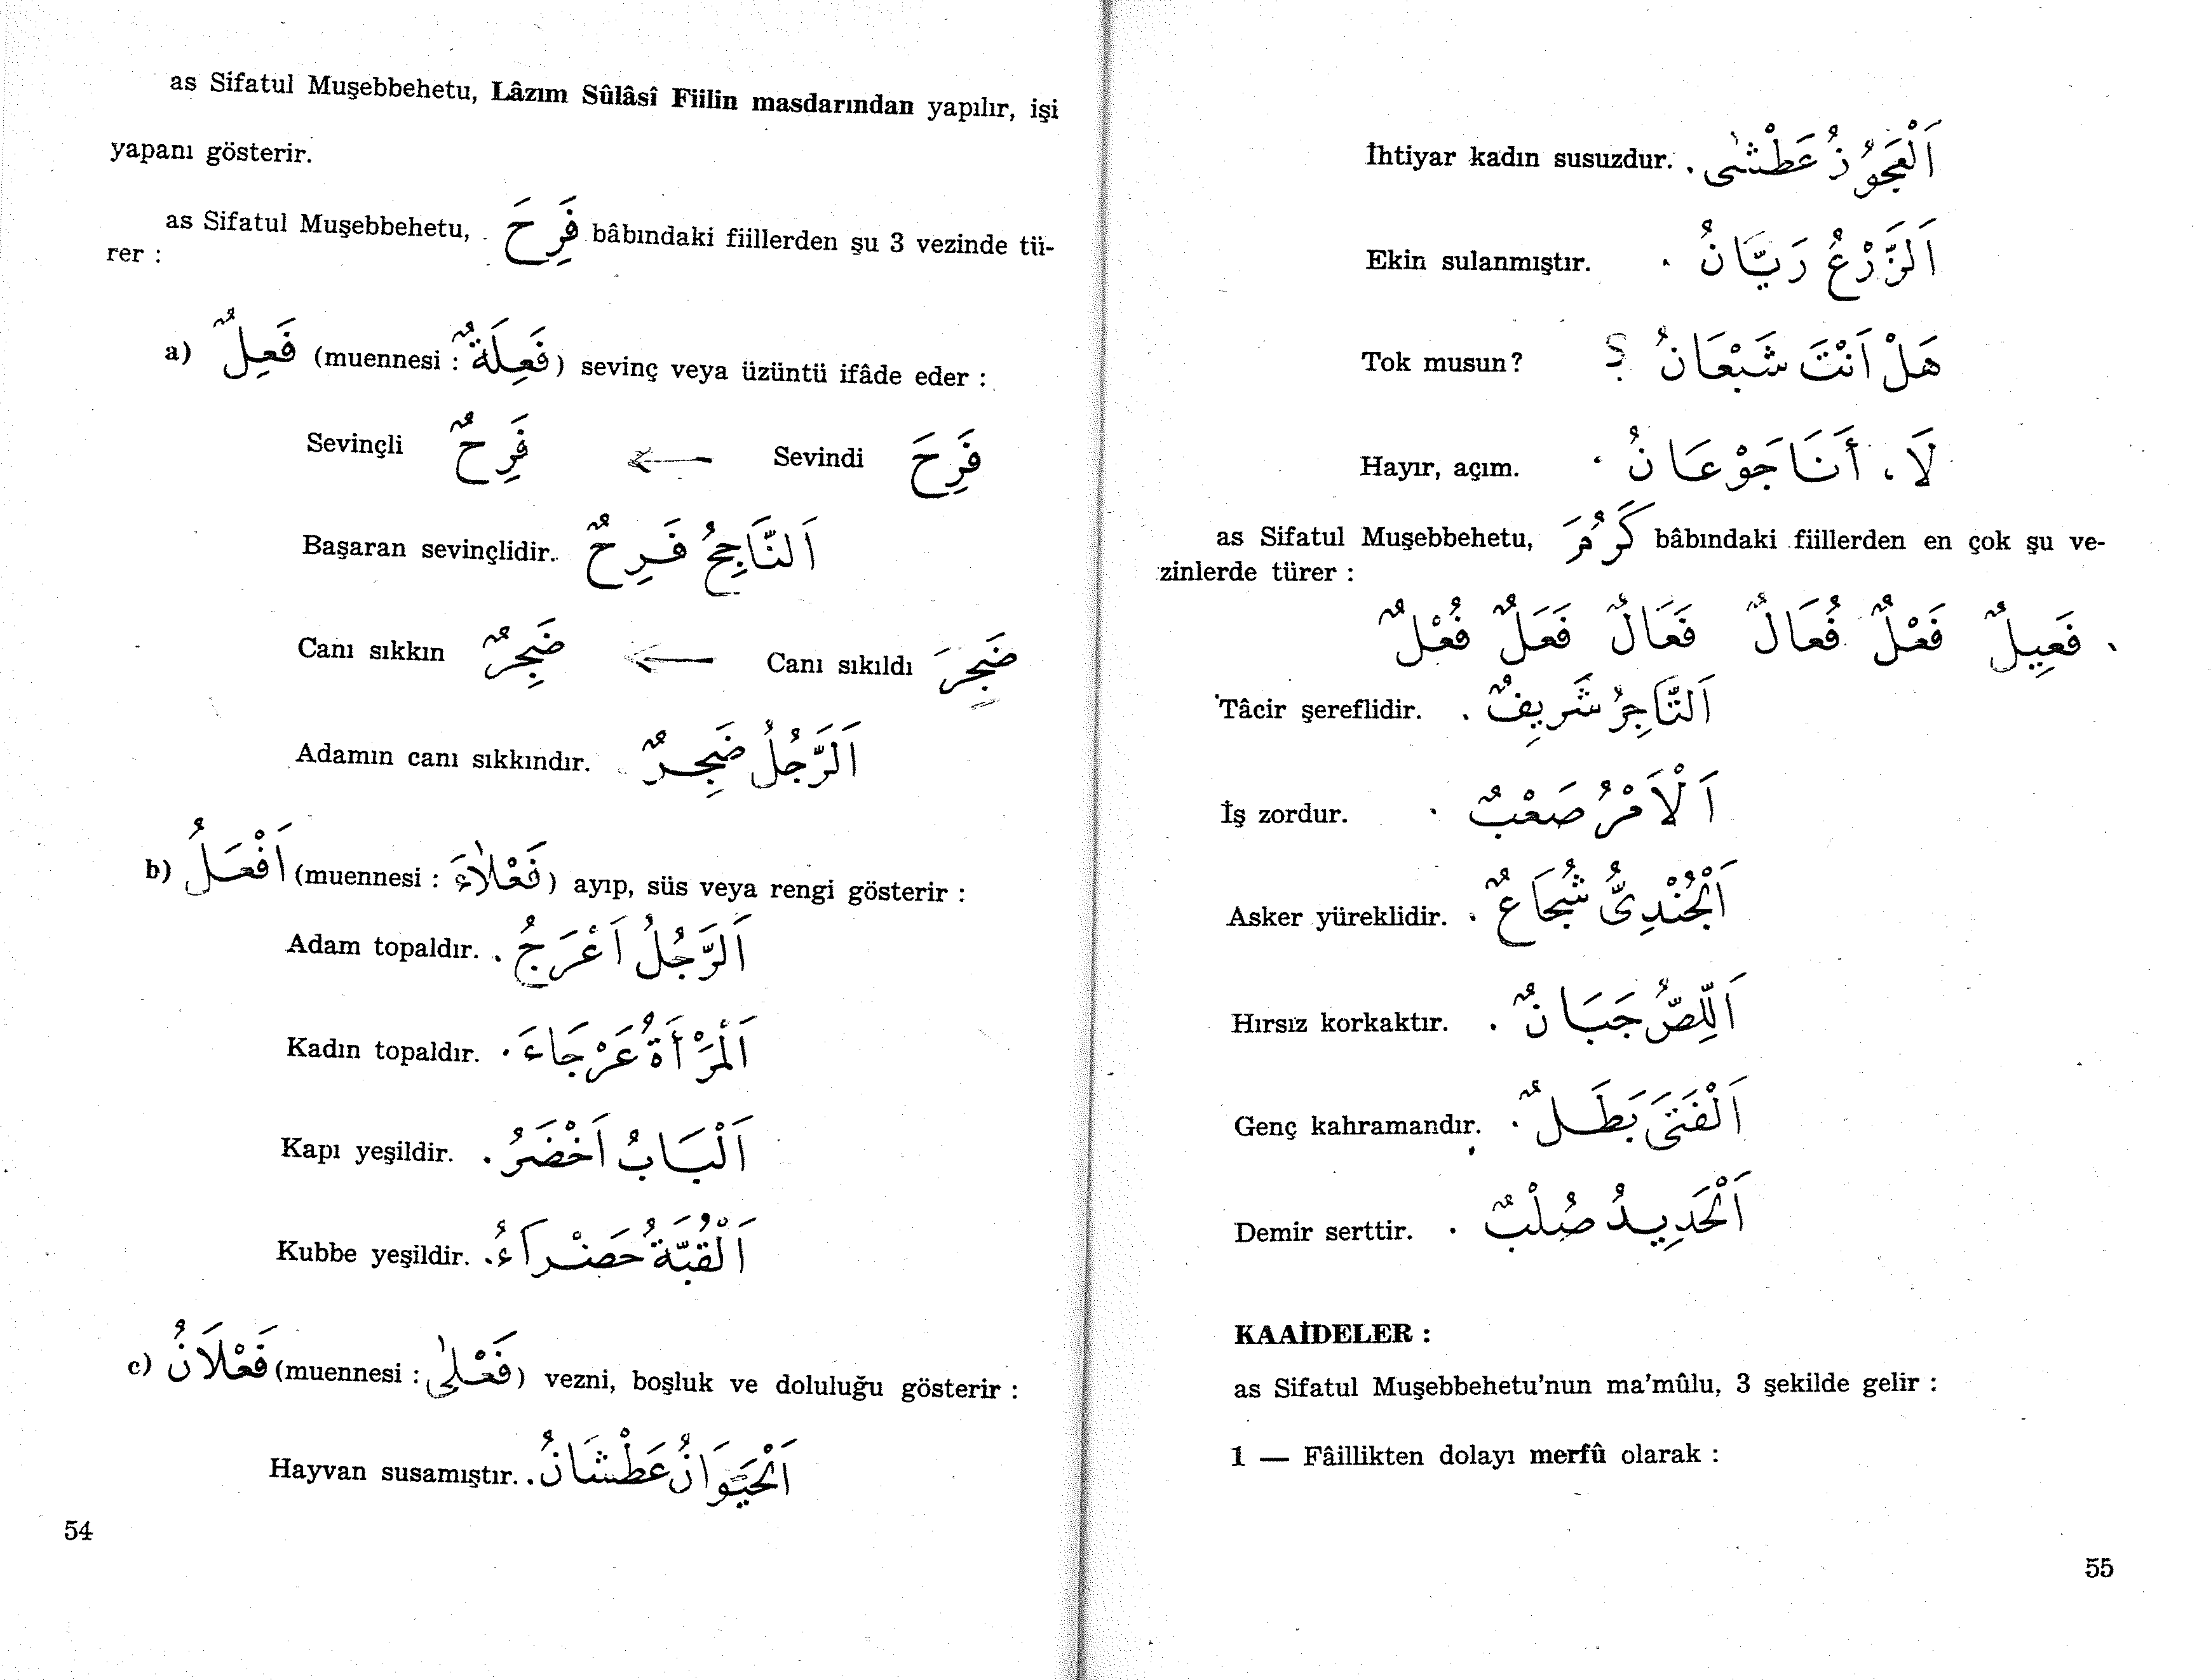 as Sifatul Muşebbehetu, Lâzım Sûlâsî Fiilin masdarından yapılır, işi
yapanı gösterir.
as Sifatul Muşebbehetu, فَرِحَ bâbındaki fiillerden şu 3 vezinde tü-
rer :
a) فَعِلٌ (muennesi : فَعِلَةٌ) sevinç veya üzüntü ifâde eder :
Sevinçli فَرِحٌ ← Sevindi فَرِحَ
Başaran sevinçlidir. اَلنَّاجِحُ فَرِحٌ
Canı sıkkın ضَجِرٌ ← Canı sıkıldı ضَجِرَ
Adamın canı sıkkındır. اَلرَّجُلُ ضَجِرٌ
b) اَفْعَلُ (muennesi : فَعْلَاءَ) ayıp, süs veya rengi gösterir :
Adam topaldır. اَلرَّجُلُ اَعْرَجُ .
Kadın topaldır. اَلْمَرْأَةُ عَرْجَاءَ .
Kapı yeşildir. اَلْبَابُ اَخْضَرُ .
Kubbe yeşildir. اَلْقُبَّةُ حَضْرَآءُ .
c) فَعْلَانُ (muennesi : فَعْلٰى) vezni, boşluk ve doluluğu gösterir :
Hayvan susamıştır. اَلْحَيَوَانُ عَطْشَانُ .
54
İhtiyar kadın susuzdur. اَلْعَجُوزُ عَطْشٰى .
Ekin sulanmıştır. اَلزَّرْعُ رَيَّانُ .
Tok musun? هَلْ اَنْتَ شَبْعَانُ ؟
Hayır, açım. لَا ، أَنَا جَوْعَانُ .
as Sifatul Muşebbehetu, كَرُمَ bâbındaki fiillerden en çok şu ve-
zinlerde türer :
فَعِيلٌ فَعْلٌ فُعَالٌ فَعَالٌ فَعَلٌ فُعْلٌ .
Tâcir şereflidir. اَلتَّاجِرُ شَرِيفٌ .
İş zordur. اَلْاَمْرُ صَعْبٌ .
Asker yüreklidir. اَلْجُنْدِىُّ شُجَاعٌ .
Hırsız korkaktır. اَللِّصُّ جَبَانٌ .
Genç kahramandır. اَلْفَتَى بَطَلٌ .
Demir serttir. اَلْحَدِيدُ صُلْبٌ .
KAAİDELER :
as Sifatul Muşebbehetu'nun ma'mûlu, 3 şekilde gelir :
1 — Fâillikten dolayı merfû olarak :
55